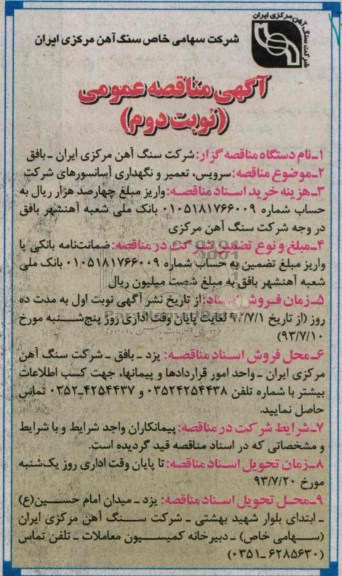 شرکت سنگ آهن مرکزی ایران
شرکت سهامی خاص سنگ آهن مرکزی ایران
آگهی مناقصه عمومی
(نوبت دوم)
۱ـ نام دستگاه مناقصه گزار: شرکت سنگ آهن مرکزی ایران ـ بافق
۲ـ موضوع مناقصه: سرویس، تعمیر و نگهداری آسانسورهای شرکت
۳ـ هزینه خرید اسناد مناقصه: واریز مبلغ چهارصد هزار ریال به
حساب شماره ۰۱۰۵۱۸۱۷۶۶۰۰۹ بانک ملی شعبه آهنشهر بافق
در وجه شرکت سنگ آهن مرکزی
۴ـ مبلغ و نوع تضمین شرکت در مناقصه: ضمانت‌نامه بانکی یا
واریز مبلغ تضمین به حساب شماره ۰۱۰۵۱۸۱۷۶۶۰۰۹ بانک ملی
شعبه آهنشهر بافق به مبلغ شصت میلیون ریال
۵ـ زمان فروش اسناد: از تاریخ نشر آگهی نوبت اول به مدت ده
روز (از تاریخ ۹۳/۷/۱ لغایت پایان وقت اداری روز پنج‌شنبه مورخ
۹۳/۷/۱۰)
۶ـ محل فروش اسناد مناقصه: یزد ـ بافق ـ شرکت سنگ آهن
مرکزی ایران ـ واحد امور قراردادها و پیمانها، جهت کسب اطلاعات
بیشتر با شماره تلفن ۰۳۵۲۴۲۵۴۴۳۸ و ۴۲۵۴۴۳۷ـ۰۳۵۲ تماس
حاصل نمایید.
۷ـ شرایط شرکت در مناقصه: پیمانکاران واجد شرایط و با شرایط
و مشخصاتی که در اسناد مناقصه قید گردیده است.
۸ـ زمان تحویل اسناد مناقصه: تا پایان وقت اداری روز یک‌شنبه
مورخ ۹۳/۷/۲۰
۹ـ محل تحویل اسناد مناقصه: یزد ـ میدان امام حسین(ع)
ـ ابتدای بلوار شهید بهشتی ـ شرکت سنگ آهن مرکزی ایران
(سهامی خاص) ـ دبیرخانه کمیسیون معاملات ـ تلفن تماس
(۶۲۸۵۶۳۰ ـ ۰۳۵۱)